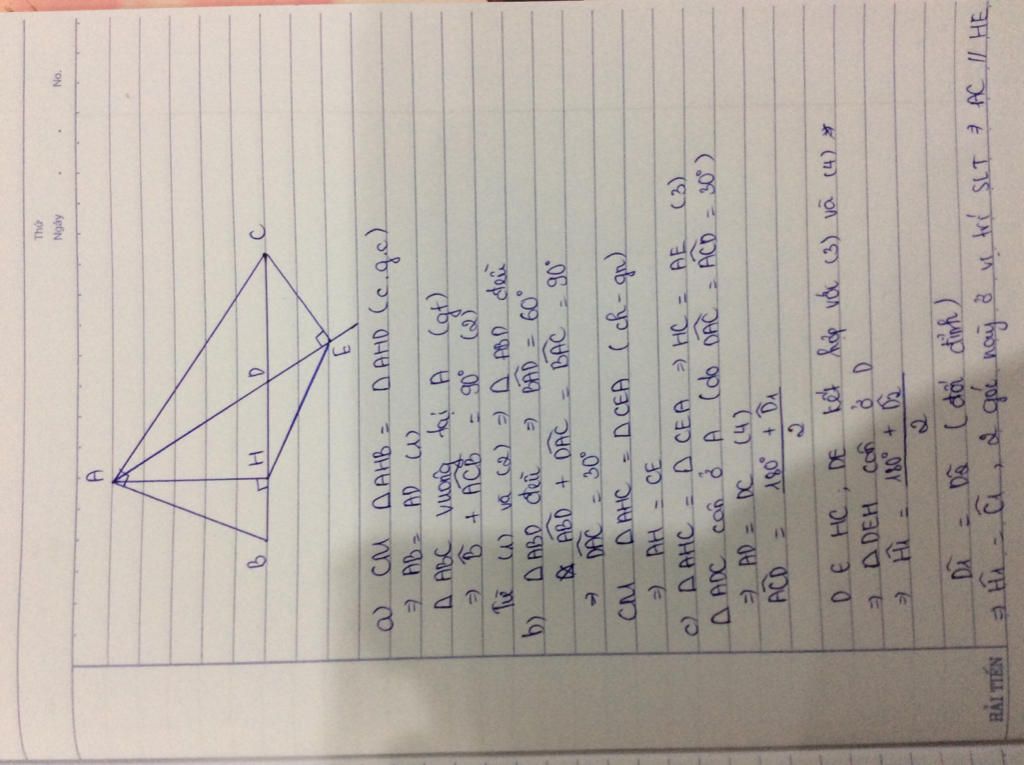 Thứ
Ngày . . No.
A
B H D C
E
a) CM Δ AHB = Δ AHD (c.g.c)
⇒ AB = AD (1)
Δ ABC vuông tại A (gt)
⇒ B̂ + ACB = 90° (2)
Từ (1) và (2) ⇒ Δ ABD đều
b) Δ ABD đều ⇒ BAD = 60°
ABD + DAC = BAC = 90°
⇒ DAC = 30°
CM Δ AHC = Δ CEA (ch - gn)
⇒ AH = CE
c) Δ AHC = Δ CEA ⇒ HC = AE (3)
Δ ADC cân ở A (do DAC = ACD = 30°)
⇒ AD = DC (4)
ACD = 180° + D̂1 / 2
D ∈ HC ; DE kết hợp với (3) và (4) ⇒
⇒ Δ DEH cân ở D
⇒ Ĥ1 = 180° + D̂2 / 2
D̂1 = D̂2 (đối đỉnh)
⇒ Ĥ1 = Ĉ1, 2 góc này ở vị trí SLT ⇒ AC // HE
HẢI TIẾN